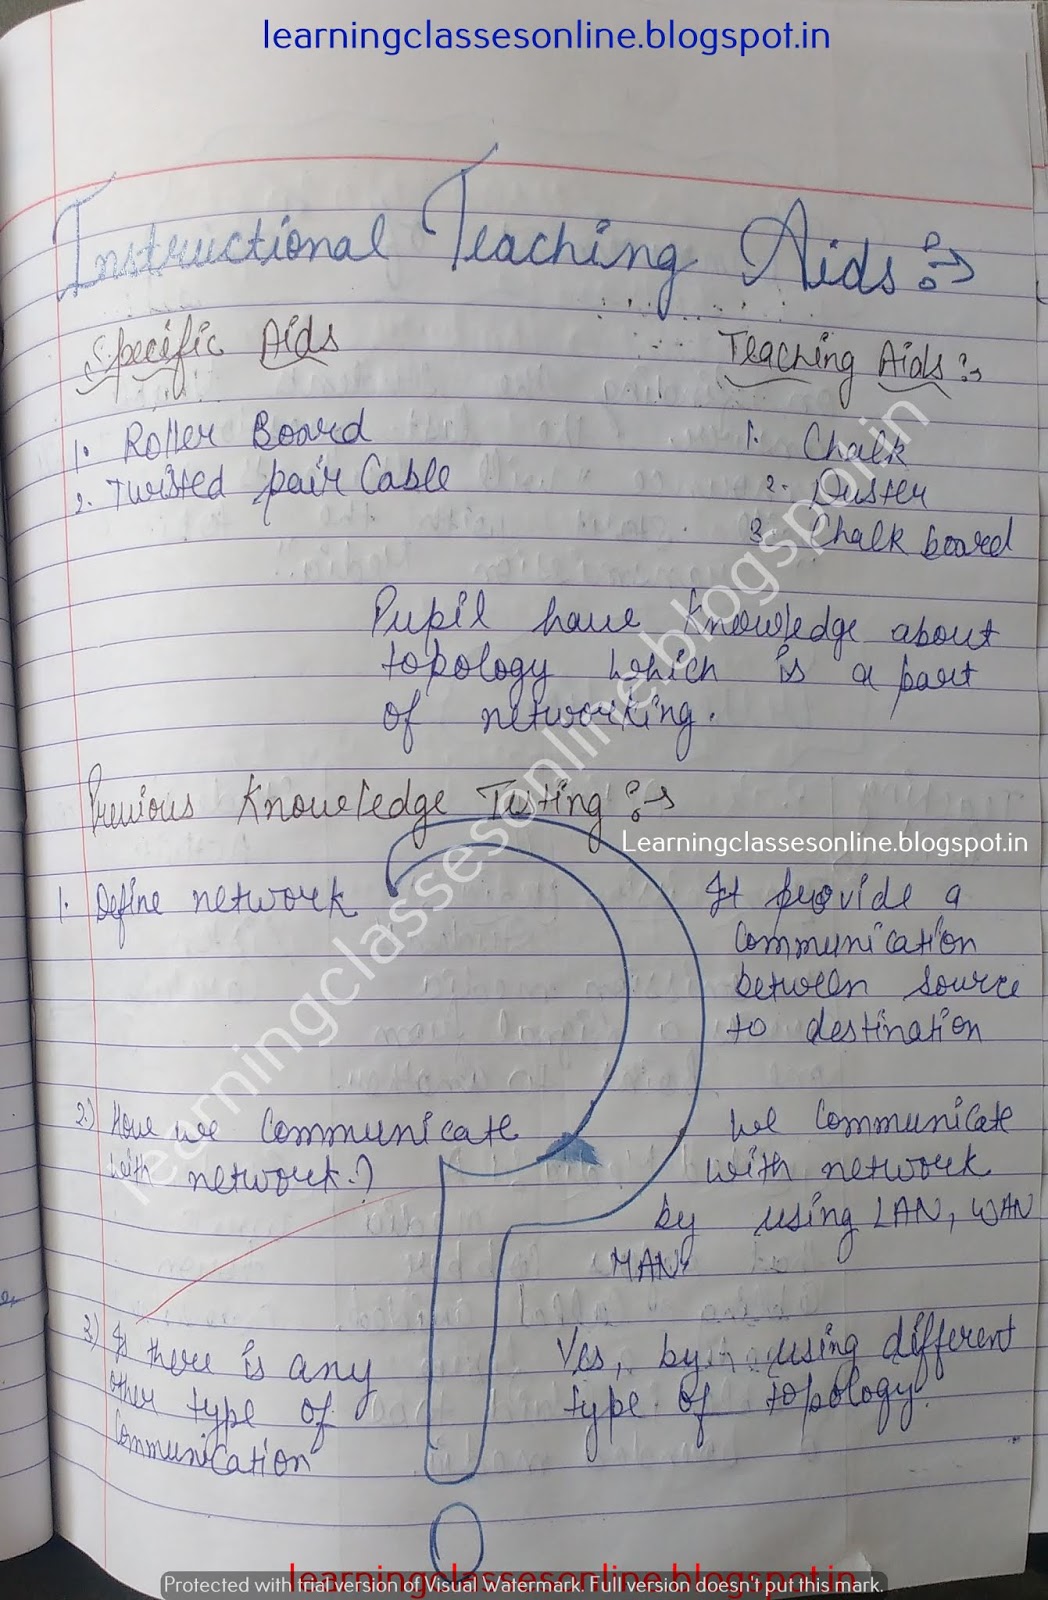 learningclassesonline.blogspot.in
Instructional Teaching Aids :→
Specific Aids
Teaching Aids :→
1. Roller Board
2. Twisted pair Cable
1. Chalk
2. Duster
3. Chalk board
Pupil have knowledge about
topology which is a part
of networking.
Previous Knowledge Testing :→
Learningclassesonline.blogspot.in
1. Define network
It provide a
communication
between source
to destination
2.) How we communicate
with network.?
we communicate
with network
by using LAN, WAN
MAN.
3.) Is there is any
other type of
Communication
Yes, by using different
type of topology.
learningclassesonline.blogspot.in
learningclassesonline.blogspot.in
Protected with trial version of Visual Watermark. Full version doesn't put this mark.